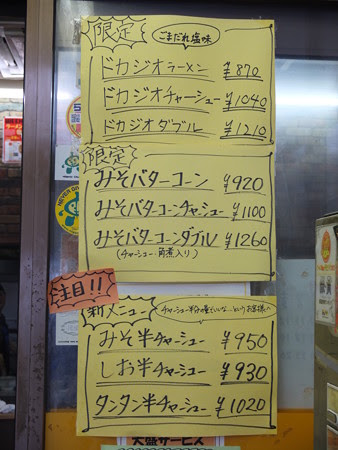 限定
ごまだれ塩味
ドカジオラーメン ¥870
ドカジオチャーシュー ¥1040
ドカジオダブル ¥1210
限定
みそバターコーン ¥920
みそバターコーンチャーシュー ¥1100
みそバターコーンダブル ¥1260
(チャーシュー・角煮入り)
注目!!
新メニュー
みそ半チャーシュー ¥950
しお半チャーシュー ¥930
タンタン半チャーシュー ¥1020
大盛サービス